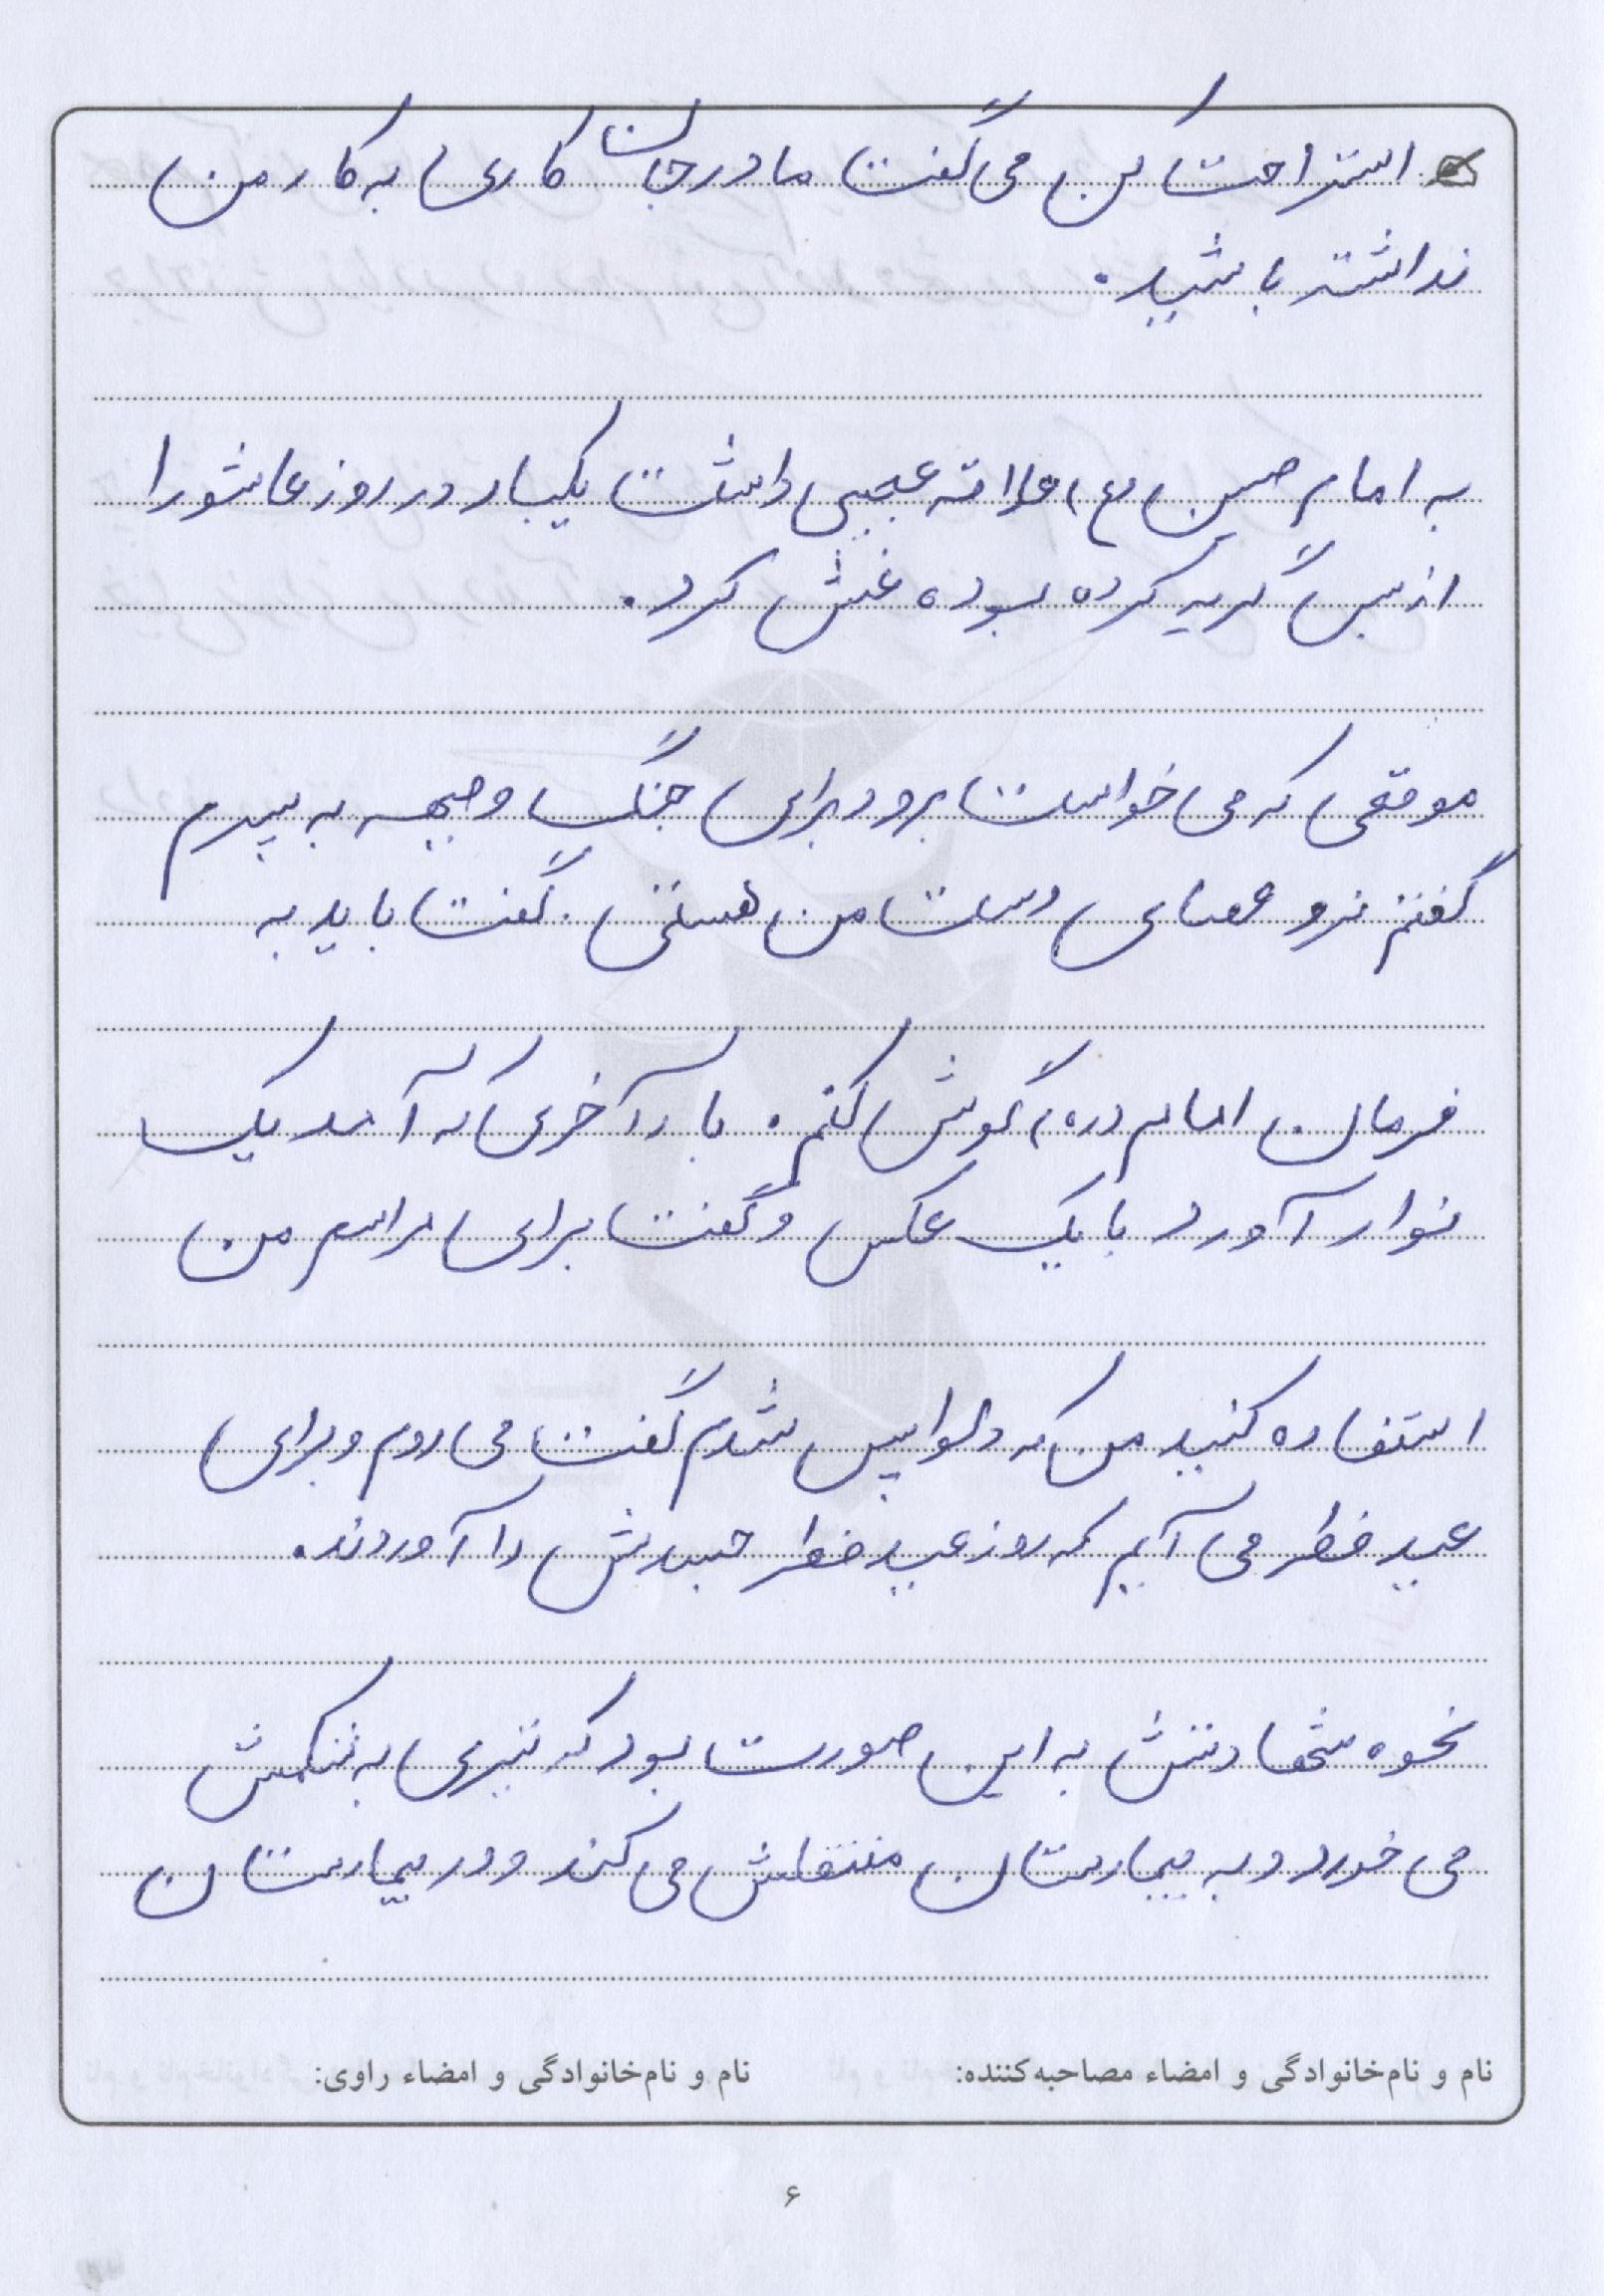 استراحت کن می گفت مادرجان کاری به کار من
نداشته باشید.
به امام حسین (ع) علاقه عجیبی داشت یکبار در روز عاشورا
از بس گریه کرده بوده غش کرد.
موقعی که می خواست برود برای جنگ و جبهه به پسرم
گفتم نرو عصای دست من هستی. گفت باید به
فرمان امام (ره) گوش کنم. بار آخری که آمد یک
نوار آورد با یک عکس و گفت برای مراسم من
استفاده کنید من که دلواپس شدم گفت می روم و برای
عید فطر می آیم که روز عید فطر جسدش را آوردند.
نحوه شهادتش به این صورت بود که تیری به شکمش
می خورد و به بیمارستان منتقلش می کند و در بیمارستان
نام و نام‌خانوادگی و امضاء مصاحبه‌کننده: نام و نام‌خانوادگی و امضاء راوی:
۶